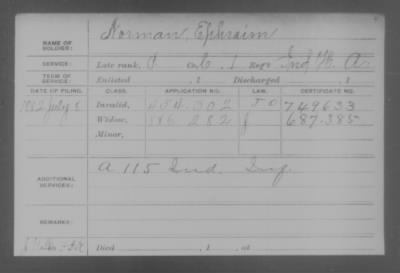 NAME OF SOLDIER: Norman, Ephraim
SERVICE: Late rank, P. Co. 1 Reg't Ind. H. A.
TERM OF SERVICE: Enlisted , 1 Discharged , 1
DATE OF FILING. CLASS. APPLICATION NO. LAW. CERTIFICATE NO.
1882 July 8 Invalid, 454.302 749633
Widow, 886.282 687.385
Minor,
ADDITIONAL SERVICES: A 115 Ind. Inf.
REMARKS:
Died , 1 , at